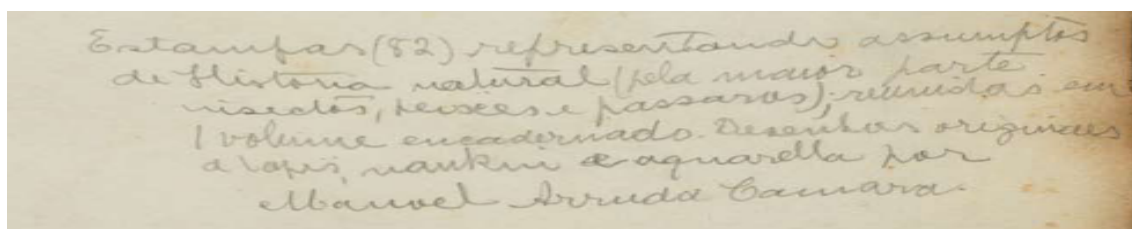 Estampas (82) representando assumptos
de Historia natural (pela maior parte
insectos, peixes e passaros); reunidas em
1 volume encadernado. Desenhos originaes
a lapis, nankin e aquarella por
Manoel Arruda Camara.